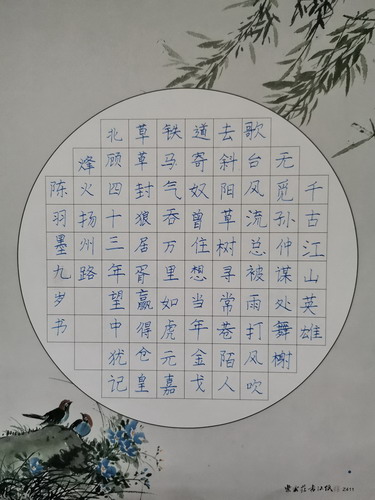 千古江山英雄
无觅孙仲谋处舞榭
歌台风流总被雨打风吹
去斜阳草树寻常巷陌人
道寄奴曾住想当年金戈
铁马气吞万里如虎元嘉
草草封狼居胥赢得仓皇
北顾四十三年望中犹记
烽火扬州路
陈羽墨九岁书